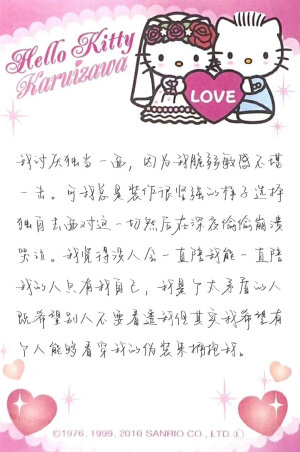 Hello Kitty
Karuizawa
LOVE
我讨厌独当一面，因为我脆弱敏感不堪
一击。可我总是装作很坚强的样子选择
独自去面对这一切然后在深夜偷偷崩溃
哭泣。我觉得没人会一直陪我能一直陪
我的人只有我自己，我是个太矛盾的人
既希望别人不要看透我但其实我希望有
个人能够看穿我的伪装来拥抱我。
©1976, 1999, 2010 SANRIO CO., LTD. Ⓛ